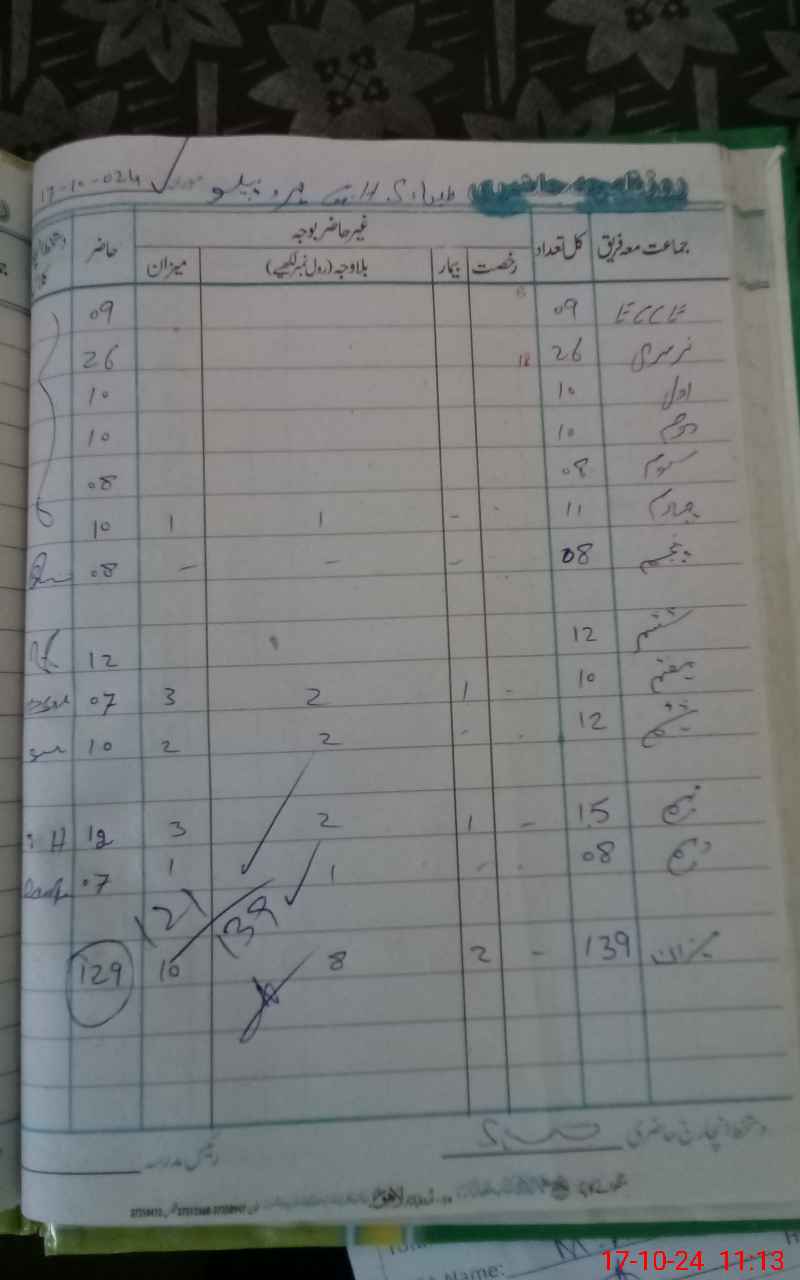 روزنامچہ حاضری طلباء G.H.S پیلو 17-10-024
جماعت معہ فریق کل تعداد غیر حاضر بوجہ حاضر
رخصت بیمار بلاوجہ (رول نمبر لکھیے) میزان
ECCE 09 09
نرسری 26 18 26
اول 10 10
دوم 10 10
سوم 08 08
چہارم 11 - 1 1 10
پنجم 08 - - - 08
ششم 12 12
ہفتم 10 - 1 2 3 07
ہشتم 12 - - 2 2 10
نہم 15 - 1 2 3 12
دہم 08 - - 1 1 07
139 121
میزان 139 - 2 8 10 129
دستخط انچارج حاضری
رئیس مدرسہ
17-10-24 11:13
Name: